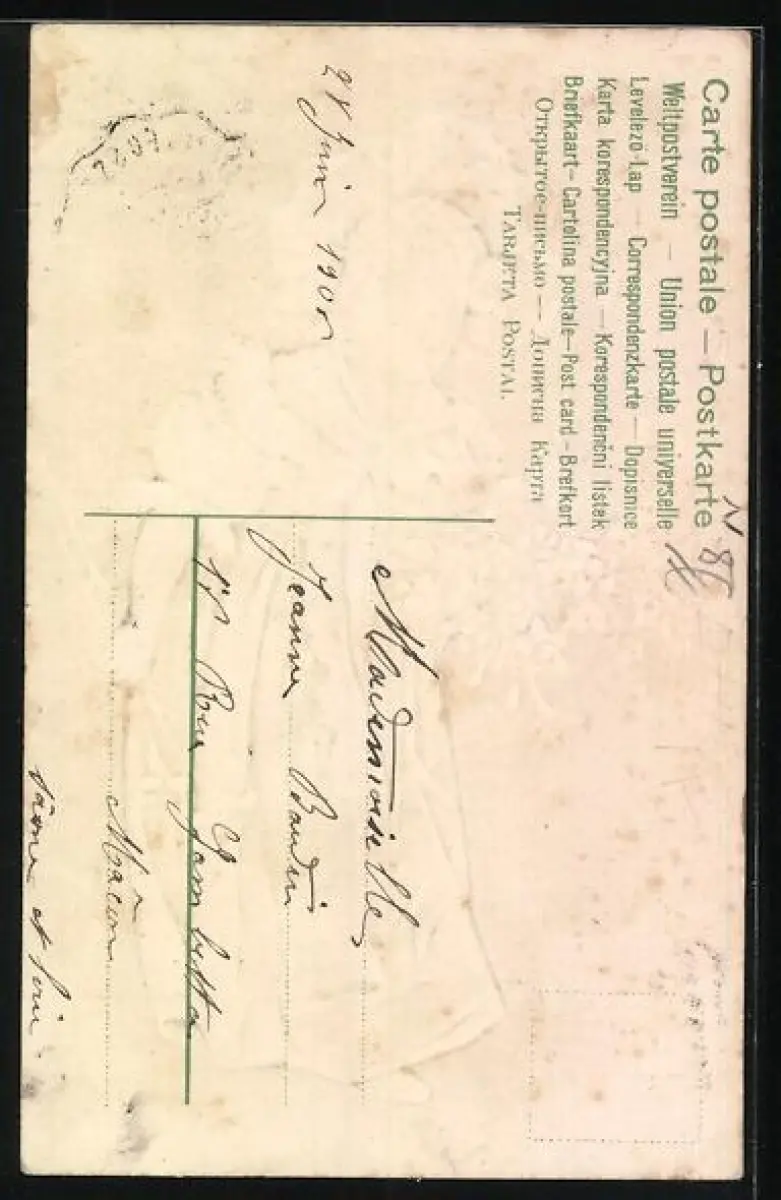 Carte postale — Postkarte
Weltpostverein — Union postale universelle
Levelezö-Lap — Correspondenzkarte — Dopisnice
Karta korespondencyjna — Korespondenční listek
Briefkaart — Cartolina postale — Post card — Brefkort
Открытое письмо — Дописна Карта
TARJETA POSTAL
Juin
Mademoiselle
Jeanne Baudin
Rue Gambetta
Mâcon
Saône et Loire